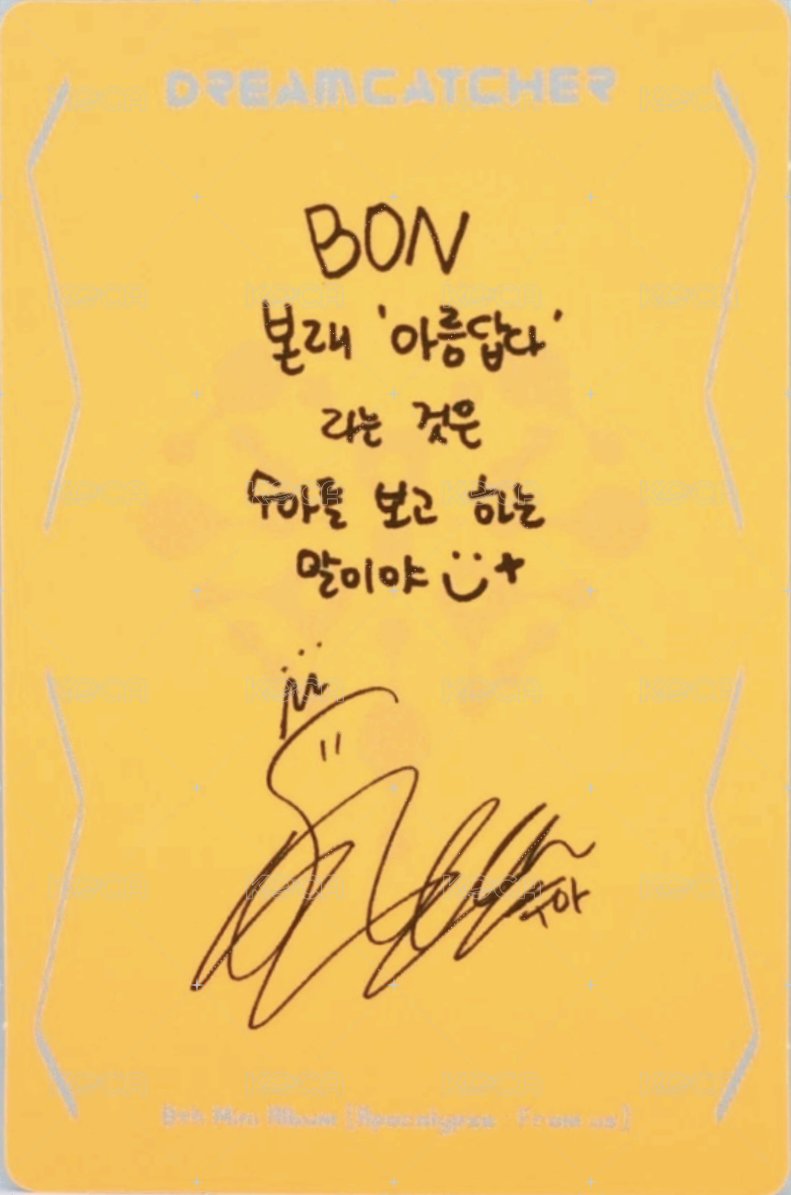 DREAMCATCHER
BON
본래 '아름답다'
라는 것은
수아를 보고 하는
말이야
수아
8th Mini Album [Apocalypse : From us]